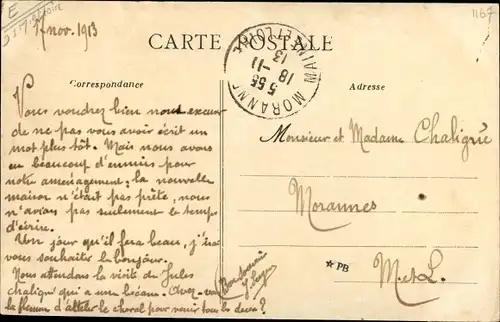 E
17 nov. 1913
1167
CARTE POSTALE
MORANNES
MAINE-ET-LOIRE
5 55
18 -11
13
Correspondance
Adresse
Vous voudrez bien nous excuser
de ne pas vous avoir écrit un
mot plus tôt. Mais nous avons
eu beaucoup d'ennuis pour
notre aménagement; la nouvelle
maison n'était pas prête, nous
n'avions pas seulement le temps
d'écrire.
Un jour qu'il fera beau, j'irai
vous souhaiter le bonjour.
Nous attendons la visite de Jules
Chaligné qui a une bécane. Avez-vous
la flemme d'atteler le cheval pour venir tous les deux?
Bonsoir
Monsieur et Madame Chaligné
Morannes
M.-et-L.
★ PB